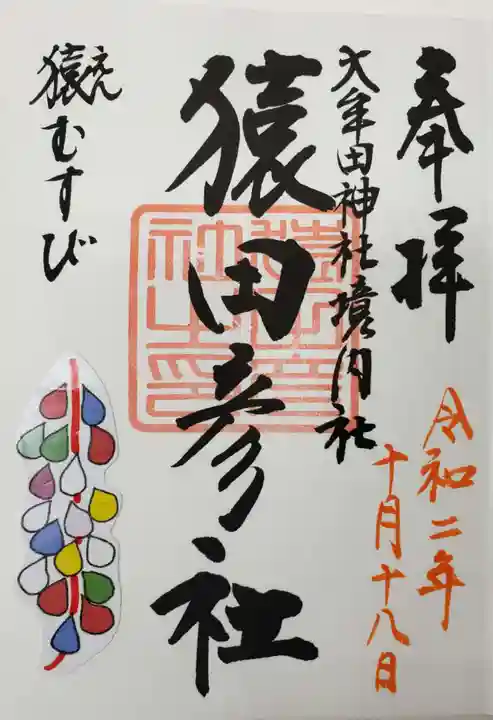 奉拝
令和二年
十月十八日
大牟田神社境内社
猿田彦社
猿田彦社之印
猿むすび
えん